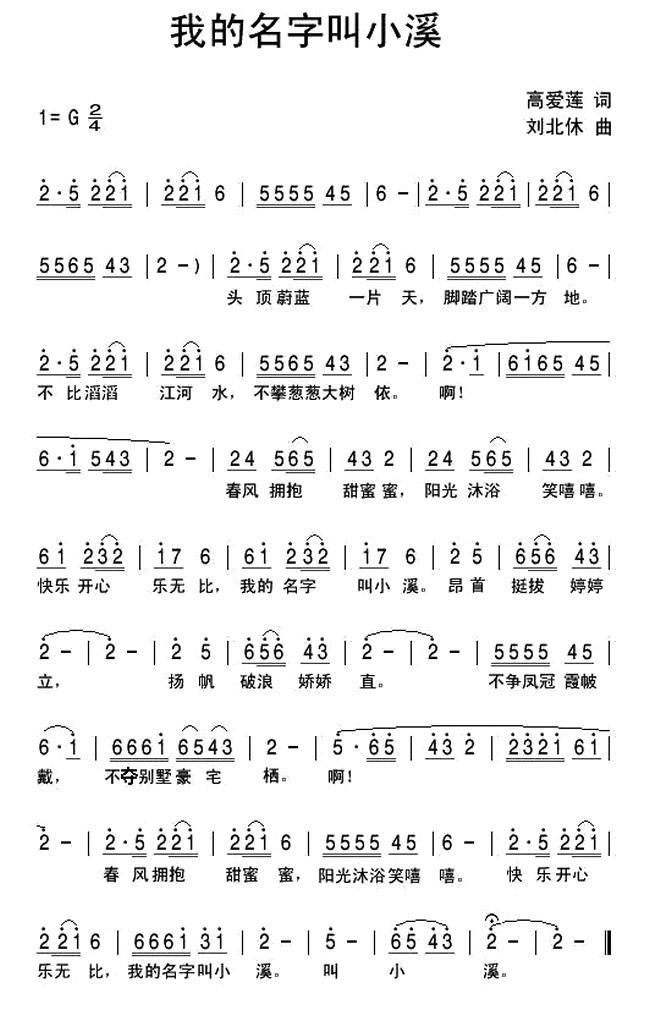 我的名字叫小溪
高爱莲 词
1= G 2/4
刘北休 曲
2·5 221 | 221 6 | 5555 45 | 6 - | 2·5 221 | 221 6 |
5565 43 | 2 - ) | 2·5 221 | 221 6 | 5555 45 | 6 - |
头 顶 蔚蓝 一片 天， 脚踏广阔一方 地。
2·5 221 | 221 6 | 5565 43 | 2 - | 2·1 | 6165 45 |
不 比 滔滔 江河 水， 不攀葱葱大树 依。 啊！
6·1 543 | 2 - | 24 565 | 43 2 | 24 565 | 43 2 |
春风 拥抱 甜蜜 蜜， 阳光 沐浴 笑嘻 嘻。
61 232 | 17 6 | 61 232 | 17 6 | 2 5 | 656 43 |
快乐 开心 乐无 比， 我的 名字 叫小 溪。 昂 首 挺拔 婷婷
2 - | 2 - | 2 5 | 656 43 | 2 - | 2 - | 5555 45 |
立， 扬 帆 破浪 娇娇 直。 不争凤冠 霞帔
6·1 | 6661 6543 | 2 - | 5·65 | 43 2 | 2321 61 |
戴， 不夺别墅 豪 宅 栖。 啊！
2 - | 2·5 221 | 221 6 | 5555 45 | 6 - | 2·5 221 |
春 风 拥抱 甜蜜 蜜， 阳光沐浴笑嘻 嘻。 快 乐 开心
221 6 | 6661 31 | 2 - | 5 - | 65 43 | 2 - | 2 - ‖
乐无 比， 我的名字叫小 溪。 叫 小 溪。